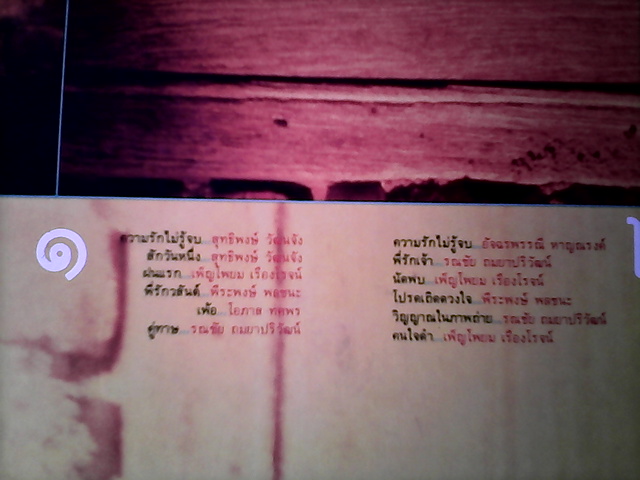 ๑
ความรักไม่รู้จบ...สุทธิพงษ์ วัฒนจัง
สักวันหนึ่ง...สุทธิพงษ์ วัฒนจัง
ฝนแรก...เพ็ญโพยม เรืองโรจน์
พี่รักวสันต์...พีระพงษ์ พลชนะ
เพ้อ...โอภาส ทศพร
คู่ทาษ...รณชัย ถมยาปริวัฒน์
ความรักไม่รู้จบ...อัจฉรพรรณี หาญณรงค์
พี่รักเจ้า...รณชัย ถมยาปริวัฒน์
นัดพบ...เพ็ญโพยม เรืองโรจน์
โปรดเถิดดวงใจ...พีระพงษ์ พลชนะ
วิญญาณในภาพถ่าย...รณชัย ถมยาปริวัฒน์
คนใจดำ...เพ็ญโพยม เรืองโรจน์